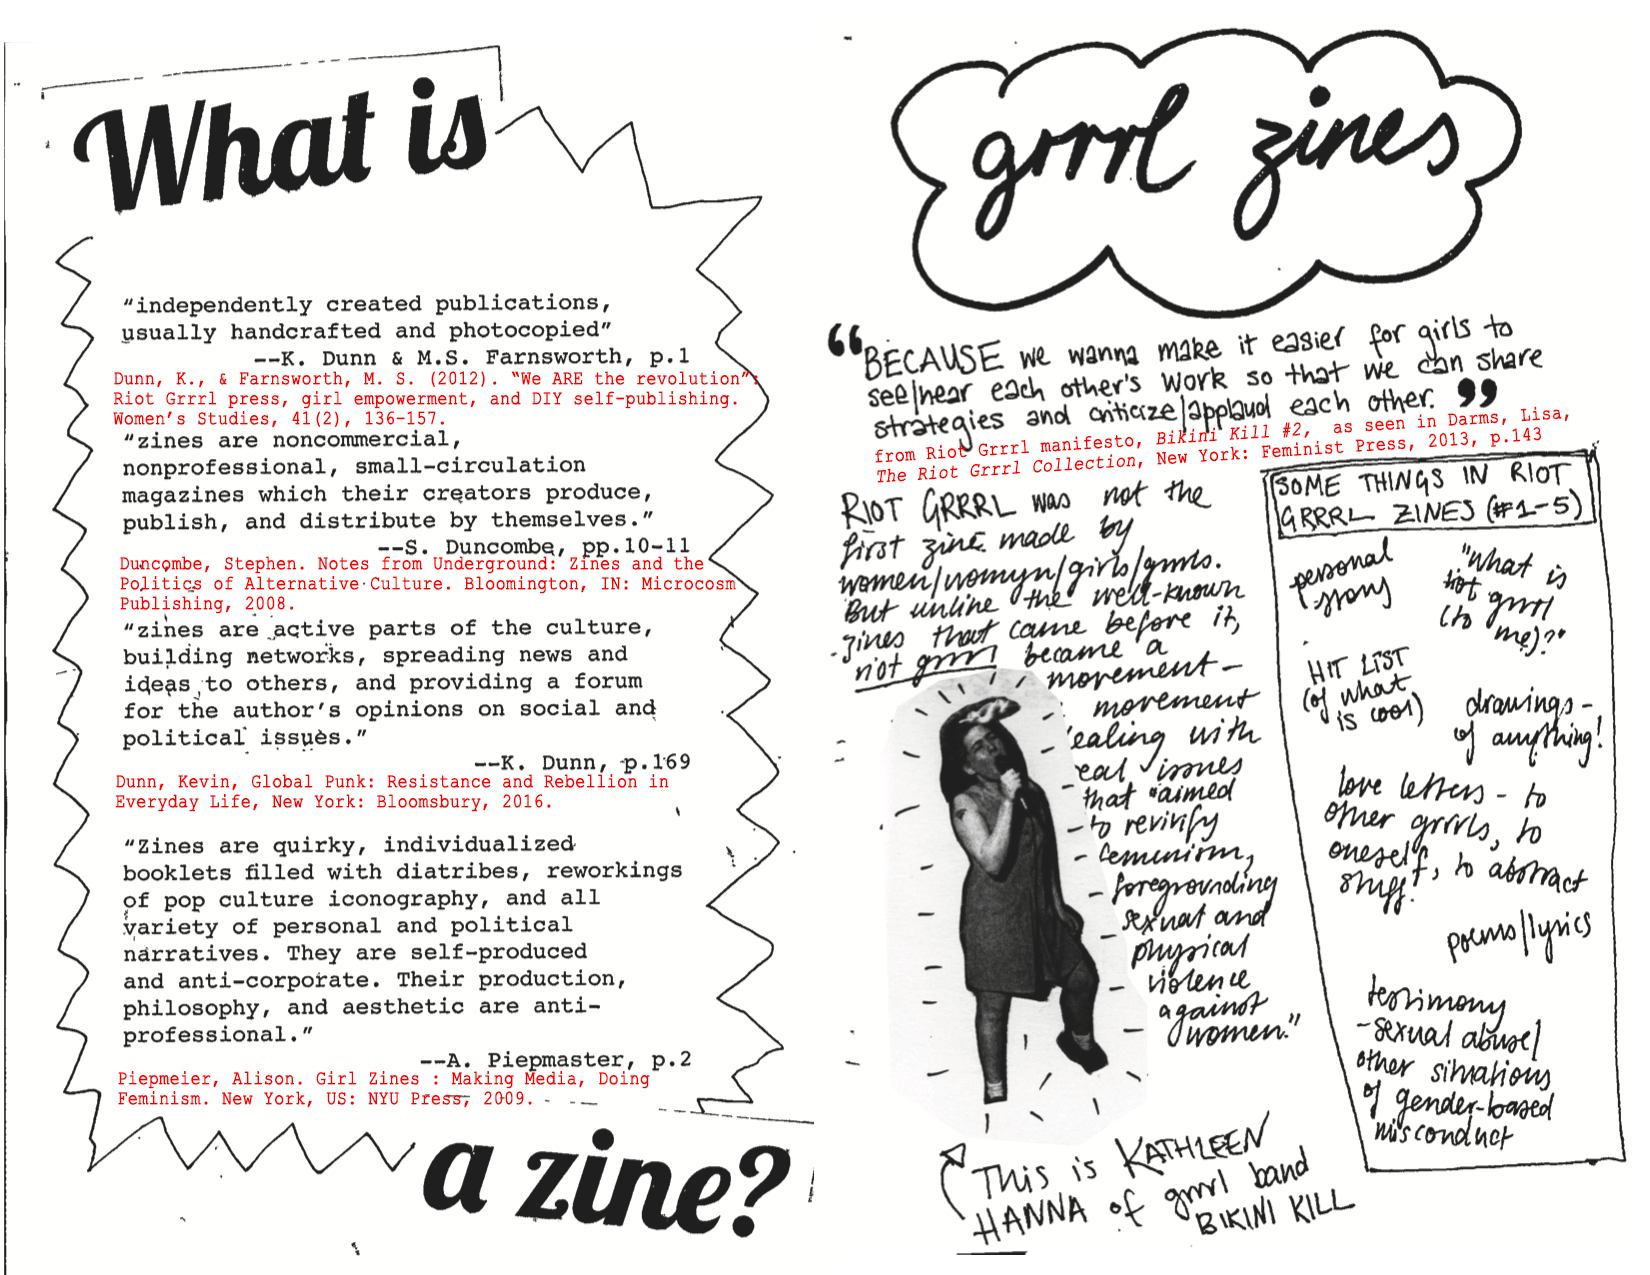 What is
"independently created publications,
usually handcrafted and photocopied"
--K. Dunn & M.S. Farnsworth, p.1
Dunn, K., & Farnsworth, M. S. (2012). "We ARE the revolution":
Riot Grrrl press, girl empowerment, and DIY self-publishing.
Women's Studies, 41(2), 136-157.
"zines are noncommercial,
nonprofessional, small-circulation
magazines which their creators produce,
publish, and distribute by themselves."
--S. Duncombe, pp.10-11
Duncombe, Stephen. Notes from Underground: Zines and the
Politics of Alternative Culture. Bloomington, IN: Microcosm
Publishing, 2008.
"zines are active parts of the culture,
building networks, spreading news and
ideas to others, and providing a forum
for the author's opinions on social and
political issues."
--K. Dunn, p.169
Dunn, Kevin, Global Punk: Resistance and Rebellion in
Everyday Life, New York: Bloomsbury, 2016.
"Zines are quirky, individualized
booklets filled with diatribes, reworkings
of pop culture iconography, and all
variety of personal and political
narratives. They are self-produced
and anti-corporate. Their production,
philosophy, and aesthetic are anti-
professional."
--A. Piepmaster, p.2
Piepmeier, Alison. Girl Zines : Making Media, Doing
Feminism. New York, US: NYU Press, 2009.
a zine?
grrrl zines
"BECAUSE we wanna make it easier for girls to
see/hear each other's work so that we can share
strategies and criticize/applaud each other."
from Riot Grrrl manifesto, Bikini Kill #2, as seen in Darms, Lisa,
The Riot Grrrl Collection, New York: Feminist Press, 2013, p.143
RIOT GRRRL was not the
first zine made by
women/womyn/girls/grrrls.
But unlike the well-known
zines that came before it,
riot grrrl became a
movement-
movement
dealing with
real issues
that "aimed
to revivify
feminism,
foregrounding
sexual and
physical
violence
against
women."
This is KATHLEEN
HANNA of grrrl band
BIKINI KILL
SOME THINGS IN RIOT
GRRRL ZINES (#1-5)
personal
story
"What is
riot grrrl
(to me)?"
HIT LIST
(of what
is cool)
drawings-
of anything!
love letters - to
other grrrls, to
oneself, to abstract
stuff.
poems/lyrics
testimony
-sexual abuse/
other situations
of gender-based
misconduct